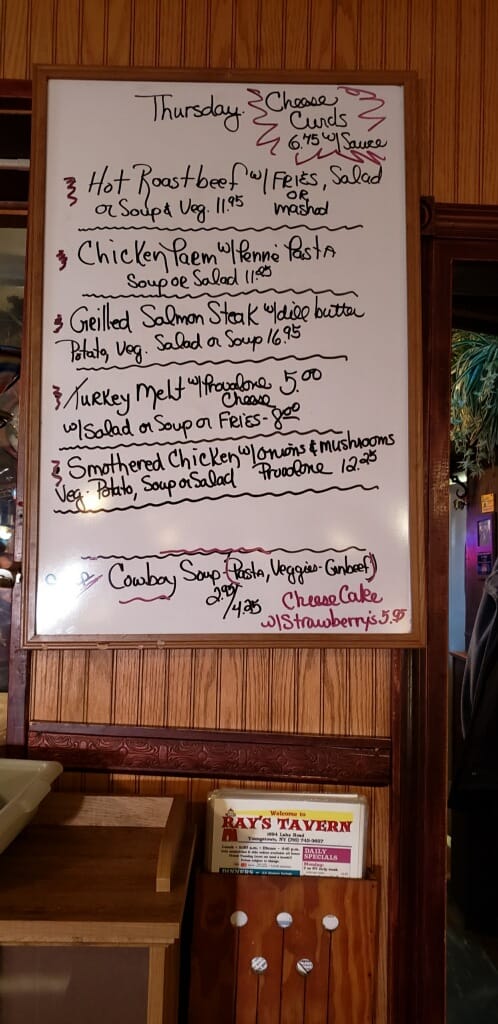 Thursday
Cheese
Curds
6.75 w/ Sauce
Hot Roastbeef w/ FRIES, Salad
OR
or Soup & Veg. 11.95 mashed
Chicken Parm w/ Penne Pasta
Soup or Salad 11.95
Grilled Salmon Steak w/ dill butter
Potato, Veg. Salad or Soup 16.95
Turkey Melt w/ Provolone 5.00
Cheese
w/ Salad or Soup or FRIES - 8.00
Smothered Chicken w/ onions & mushrooms
Veg. Potato, Soup or Salad Provolone 12.25
Cowboy Soup - (Pasta, Veggies - Grnbeef)
2.95/4.25
Cheese Cake
w/ Strawberry's 5.95
Welcome to
RAY'S TAVERN
Youngstown, NY
DAILY
SPECIALS
DINNERS